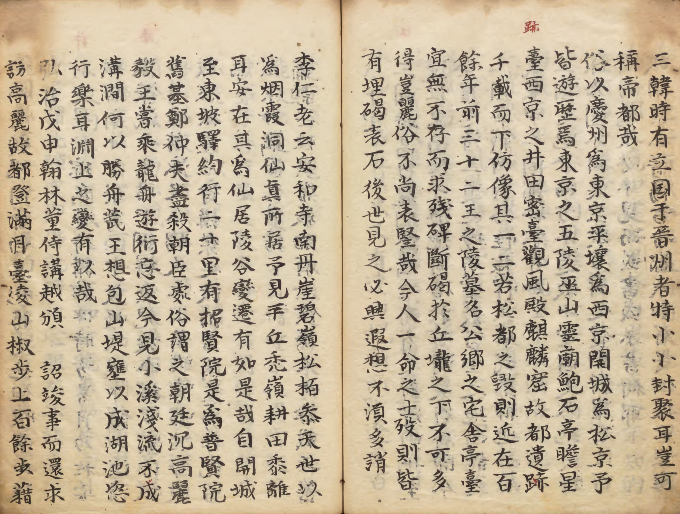 跡
三韓時有立国于晉州者特小小封聚耳豈可
稱帝都哉
俗以慶州為東京平壤為西京開城為松京予
皆遊歴焉東京之五陵巫山靈廟鮑石亭瞻星
臺西京之井田密臺觀風殿麒麟窟故都遺跡
千載而下仿像其一二若松都之毀則近在百
餘年前三十二王之陵墓名公鄉之宅舍亭臺
宜無不存而求残碑斷碣於丘壠之下不可多
得豈麗俗不尚表竪哉今人一命之士歿則皆
有埋碣表石後世見之必興遐想不湏多誚
李仁老云安和寺南丹崖碧嶺松栢叅天世以
為烟霞洞仙真所居予見平丘禿嶺耕田黍離
耳安在其為仙居陵谷變遷有如是哉自開城
至東坡驛約行一十里有招賢院是為普賢院
舊基鄭仲夫盡殺朝臣處俗謂之朝廷沉高麗
毅王嘗乗龍舟遊衍忘返今見小溪淺流不成
溝澗何以勝舟㦲王想包山堤壅以成湖池恣
行樂耳淵上之變有以哉
弘治戊申翰林董侍講越頒 詔竣事而還求
訪高麗故都登滿月臺凌山椒步上百餘武藉